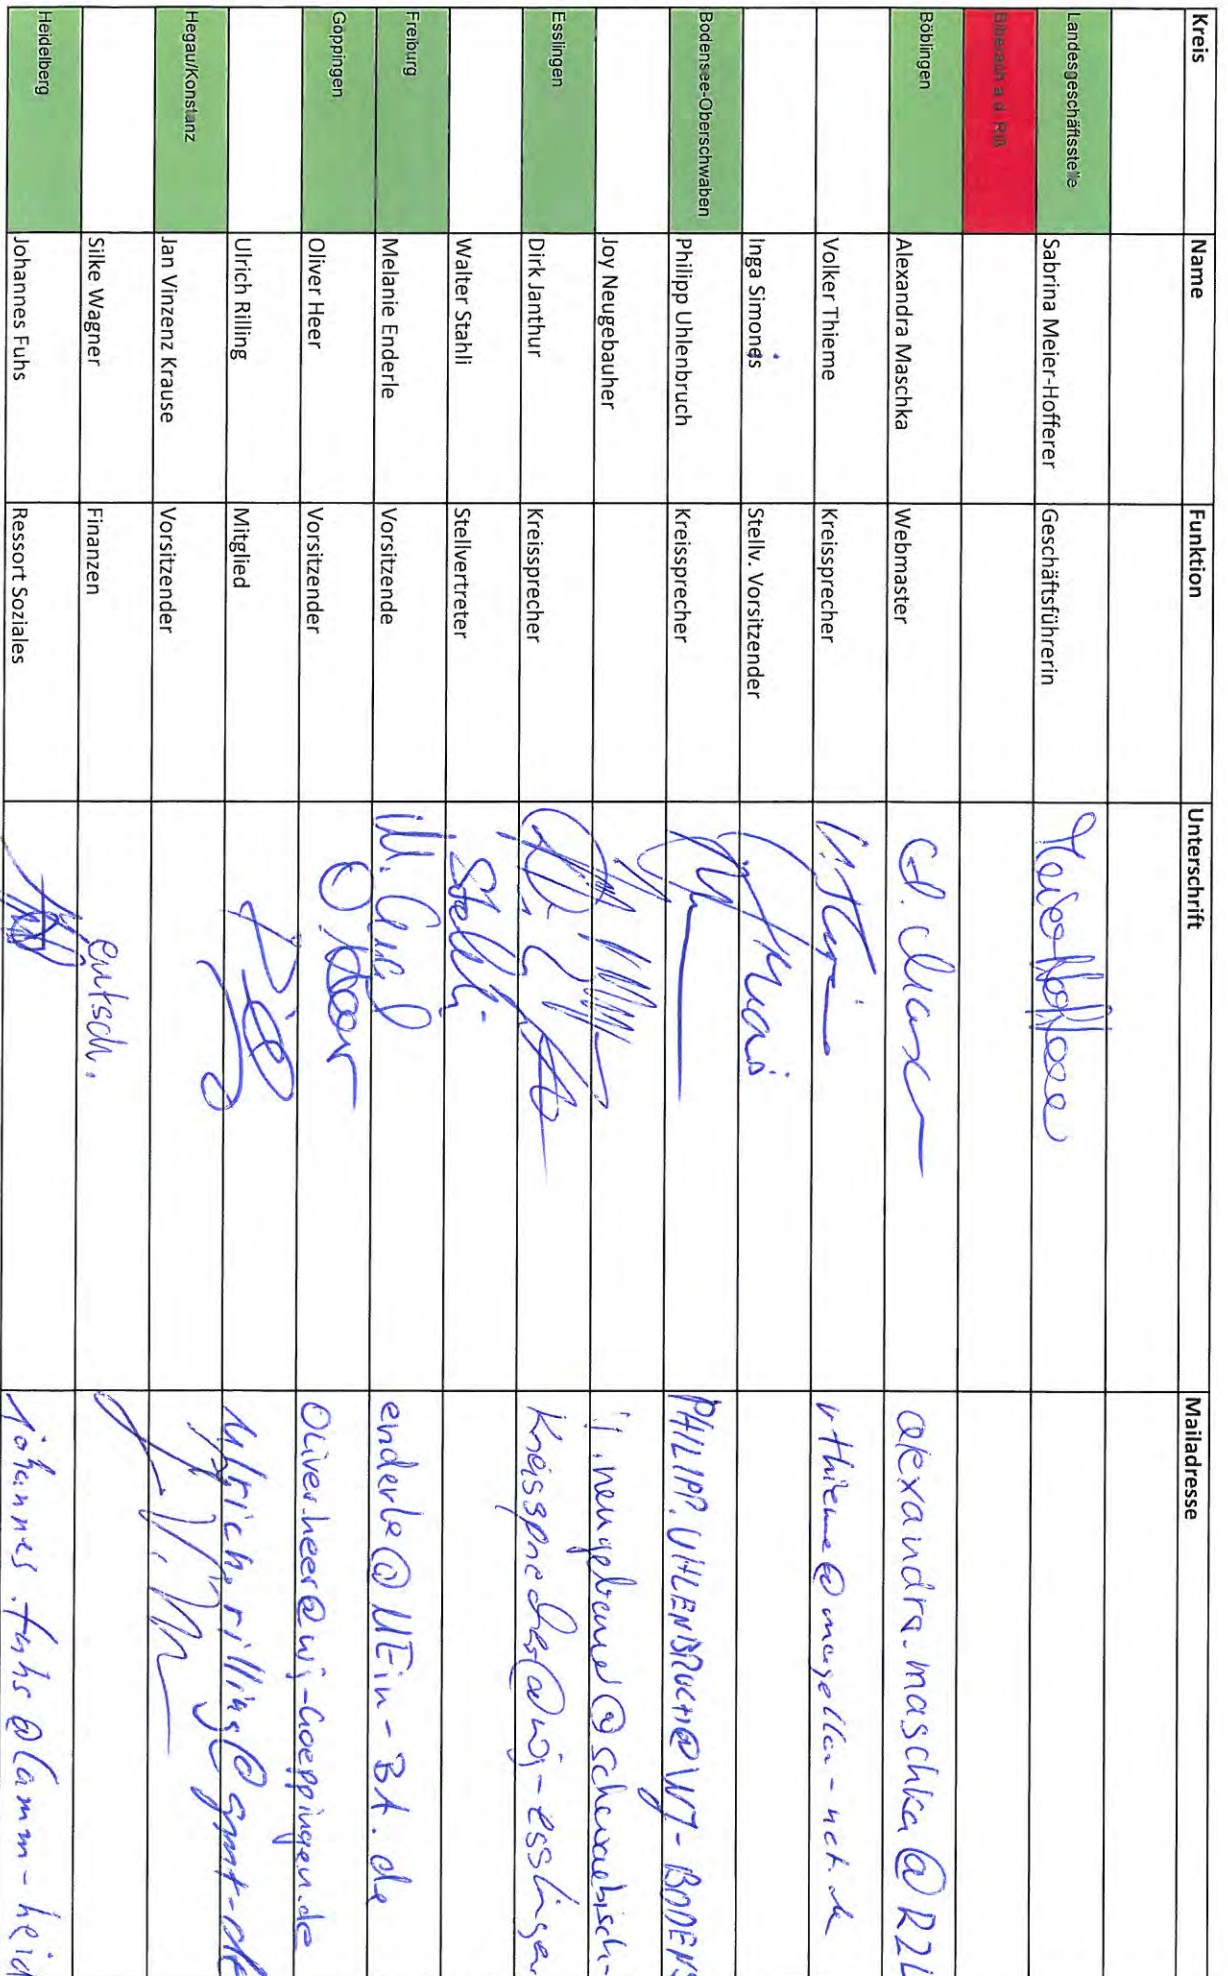 Kreis Name Funktion Unterschrift Mailadresse
Landesgeschäftsstelle Sabrina Meier-Hofferer Geschäftsführerin
Biberach a.d. Riß
Böblingen Alexandra Maschka Webmaster A. Masch alexandra.maschka@RZL
Volker Thieme Kreissprecher vthieme@magellan-net.de
Inga Simones Stellv. Vorsitzender
Bodensee-Oberschwaben Philipp Uhlenbruch Kreissprecher PHILIPP.UHLENBRUCH@WJ-BODENS
Joy Neugebauher
Esslingen Dirk Janthur Kreissprecher Kreissprecher@wj-esslingen
Walter Stahli Stellvertreter Stahli
Freiburg Melanie Enderle Vorsitzende enderle@MEin-BA.de
Göppingen Oliver Heer Vorsitzender O Heer Oliver.heer@wj-Goeppingen.de
Ulrich Rilling Mitglied Ulrich.rilling@gmt-de
Hegau/Konstanz Jan Vinzenz Krause Vorsitzender
Silke Wagner Finanzen entsch.
Heidelberg Johannes Fuhs Ressort Soziales johannes.fuhs@lamm-heid